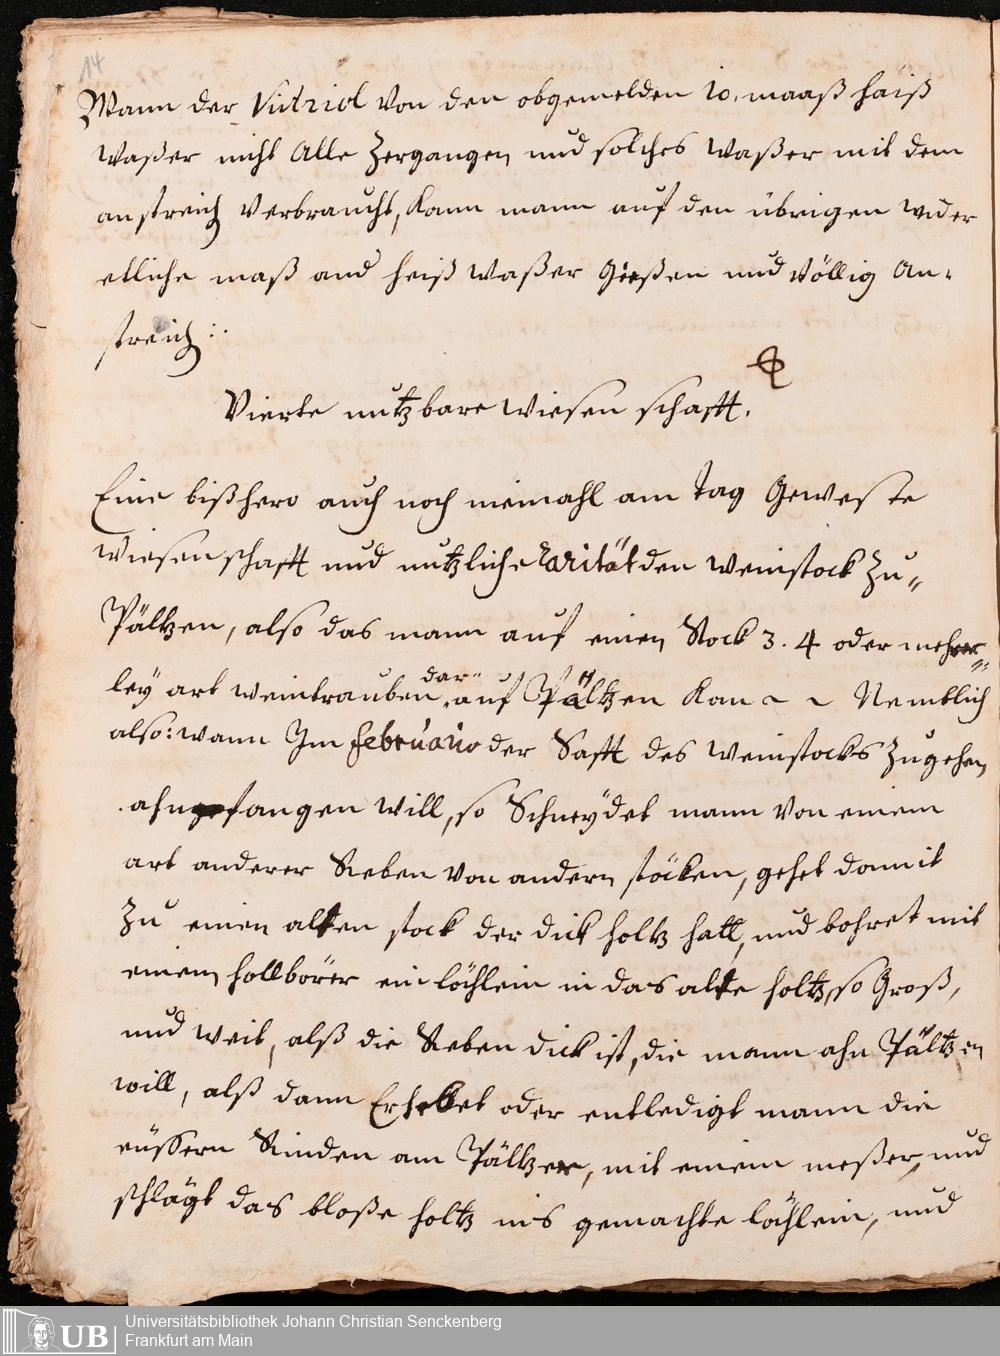 14
Wann der Victriol Von den obgemelden 10. maaß haiß
Waßer nicht Alle Zergangen und solches Waßer mit dem
anstreich Verbraucht, Kann mann auf den übrigen wider
etliche maß and heiß Waßer Gießen und Völlig An-
streich:.
Vierte nutzbare Wiesenschafft.
Eine bißhero auch noch niemahl am Tag Geweste
Wiesenschafft und nutzliche Rarität den Weinstock Zu-
Pältzen, also das mann auf einen Stock 3. 4 oder mehrer-
ley art Weintrauben dar- auf Pältzen Kan Nemblich
also: wann Im Februario der Safft des Weinstocks Zugehen
ahnfangen will, so Schneydet mann Von einem
art anderer Reben Von andern stöcken, gehet damit
Zu einen alten stock der dick holtz hatt, und bohret mit
einem hollbörer ein löchlein in das alte holtz, so Groß,
und weit, alß die Reben dick ist, die mann ahn Pältzen
will, alß dann Erhebet oder entledigt mann die
eüssern Rinden am Pältzer, mit einem meßer, und
schlägt das bloße holtz ins gemachte löchlein, und
UB
Universitätsbibliothek Johann Christian Senckenberg
Frankfurt am Main